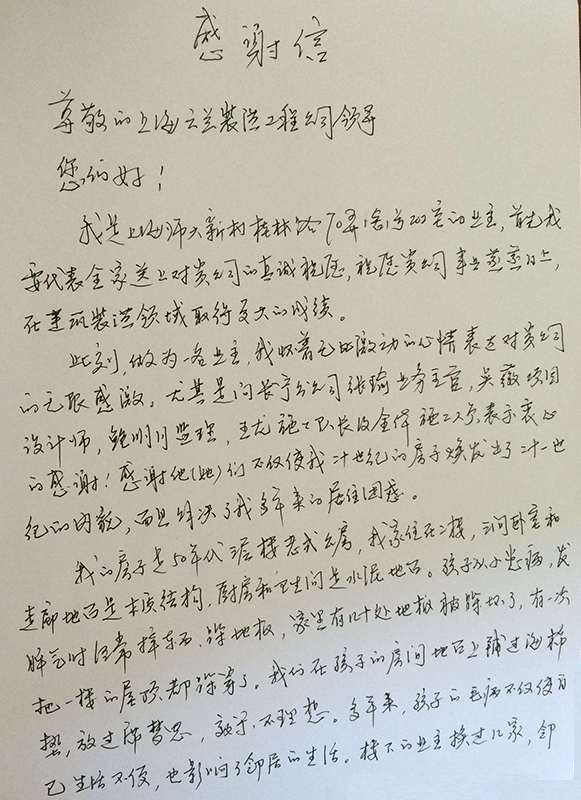 感谢信
尊敬的上海云兰装潢工程公司领导
您们好！
我是上海师大新村桂林路70弄 号202室的业主，首先我
要代表全家送上对贵公司的真诚祝愿，祝愿贵公司事业蒸蒸日上，
在建筑装潢领域取得更大的成绩。
此刻，做为一名业主，我怀着无比激动的心情表达对贵公司
的无限感激。尤其是向长宁分公司张瑜业务主管，吴薇项目
设计师，鲍 川监理，王 施工队长及全体施工人员表示衷心
的感谢！感谢他（她）们不仅使我二十世纪的房子焕发出了二十一世
纪的面貌，而且解决了我多年来的居住困惑。
我的房子是50年代三层楼老式公房，我家住在二楼，三间卧室和
走廊地面是木质结构，厨房和卫生间是水泥地面。孩子从小患病，发
脾气时经常摔东西、跺地板，家里有几十处地板被跺坏了，有一次
把一楼的屋顶都跺穿了。我们在孩子的房间地面上铺过海棉
垫，放过席梦思，效果不理想。多年来，孩子的毛病不仅使自
己生活不便，也影响了邻居的生活。楼下的业主换过几家，邻